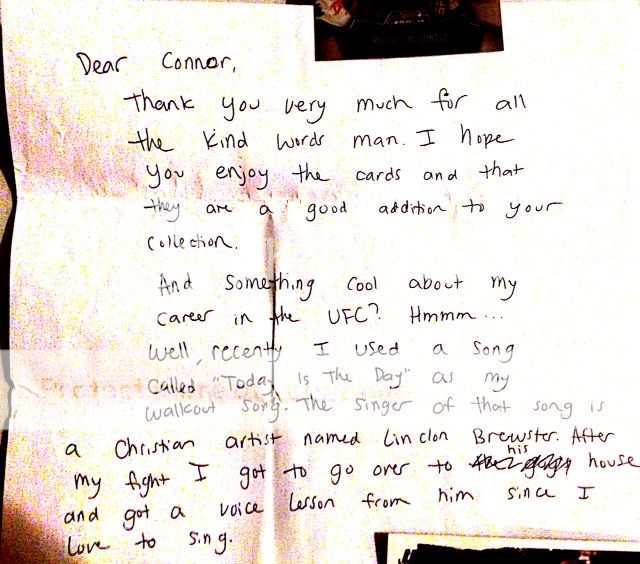 Dear Connor,
Thank you very much for all
the kind words man. I hope
you enjoy the cards and that
they are a good addition to your
collection.
And something cool about my
career in the UFC? Hmmm...
Well, recently I used a song
called "Today Is The Day" as my
walkout song. The singer of that song is
a Christian artist named Linclon Brewster. After
my fight I got to go over to his house
and got a voice lesson from him since I
love to sing.